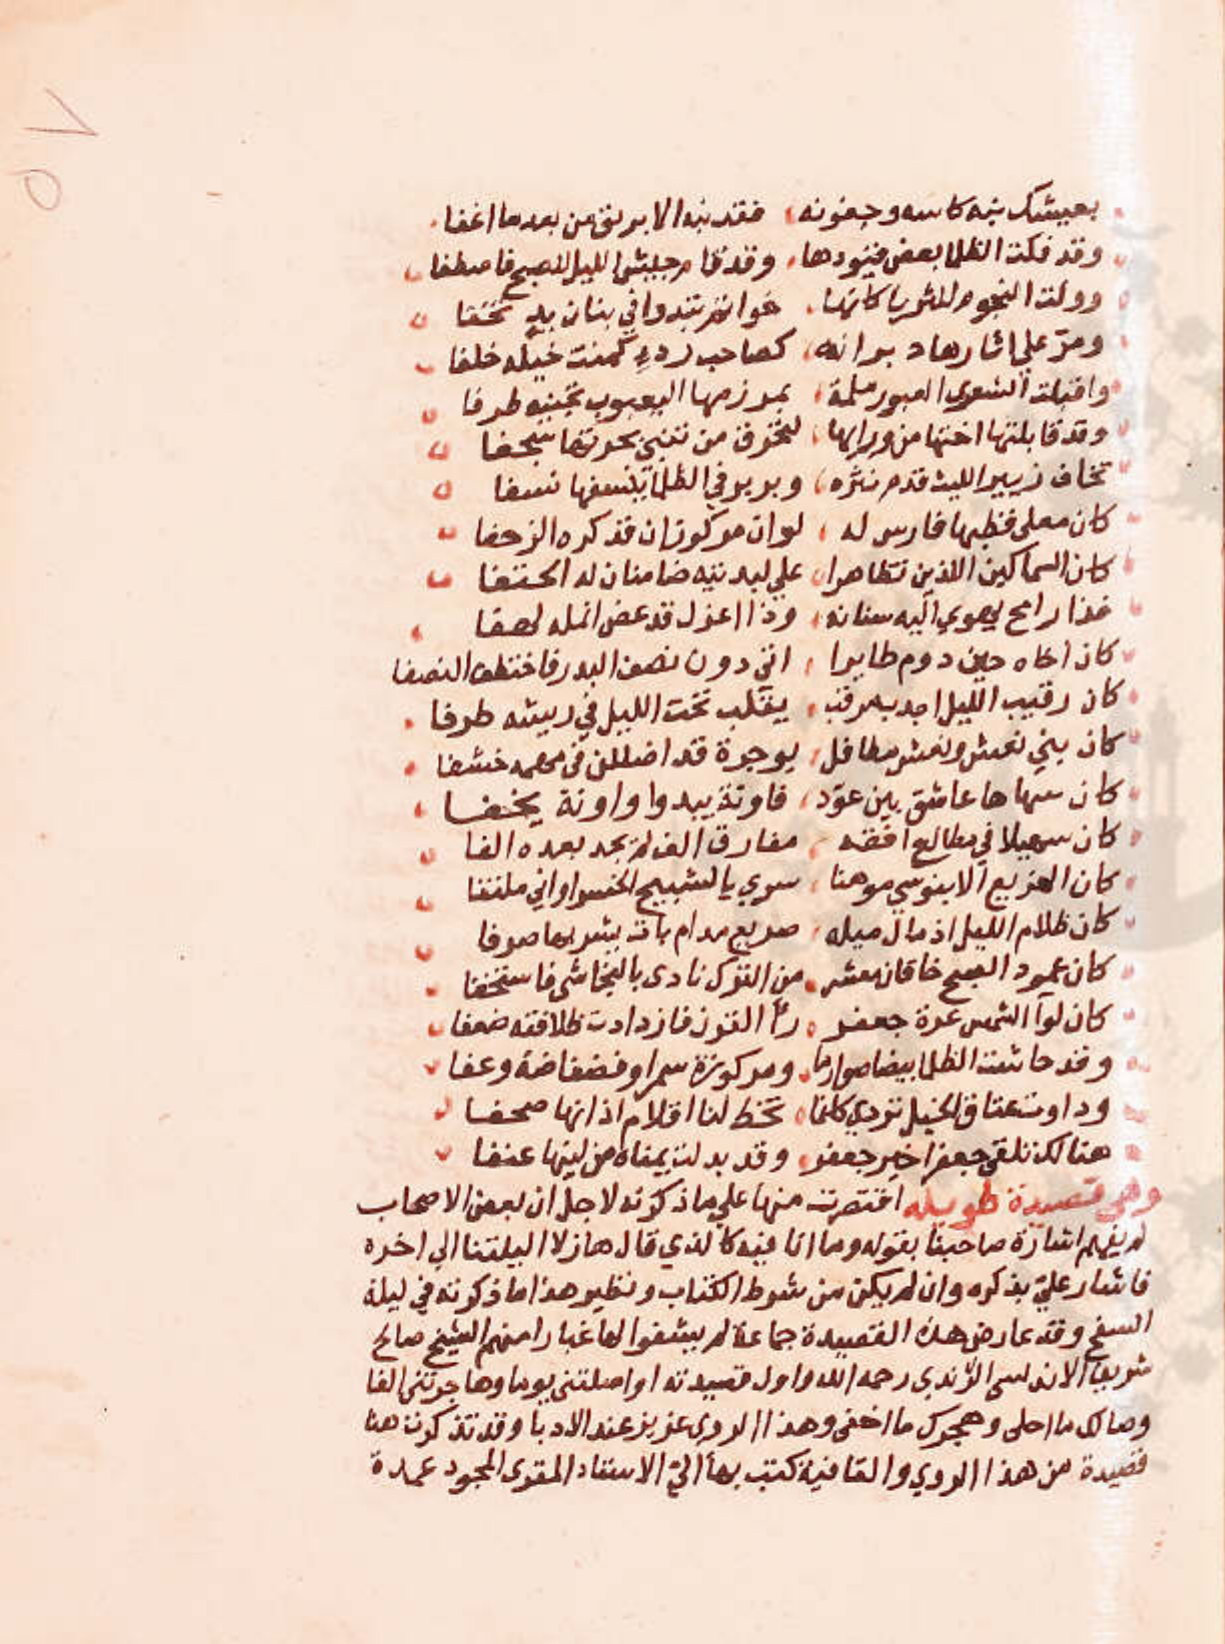 بعيشك نبه كاسه وجفونه فقد نبه الابريق من بعد ما اغفا
وقد فكت الظلما بعض قيودها وقد قام جيش الليل للصبح فاصطفا
وولت النجوم للثريا كانها خواتم تبدوا في بنان يد تخفا
ومر علي اثارها دبرانها كصاحب ردء كمنت خيله خلفا
واقبلت الشعري العبور ملمة بمرزمها اليعبوب تجنبه طرفا
وقد قابلتها اختها من ورايها لتخرق من ثنيي مجرتها سجفا
تخاف زيير الليث قدم نثره وبربر في الظلما ينسفها نسفا
كان معلى قطبها فارس له لوان مركوزان قد كره الزحفا
كان السماكين اللذين تظاهرا علي لبدتيه ضامنان له الحتفا
فذا رامح يهوي اليه سنانه وذا اعزل قد عض انمله لهفا
كان اخاه حين دوم طايرا اتي دون نصف البدر فاختطف النصفا
كان رقيب الليل اجدل مرقب يقلب تحت الليل في ريشه طرفا
كان بني نعش ونعش مطافل بوجرة قد اضللن في مهمه خشفا
كان سهاها عاشق بين عود فاونة يبدوا واونة يخفا
كان سهيلا في مطالع افقه مفارق الف لم يجد بعده الفا
كان الهزيع الابنوسي موهنا سري بالنسيج الخسرواني ملتفا
كان ظلام الليل اذ مال ميله صريع مدام بات يشربها صرفا
كان عمود الصبح خاقان معشر من الترك نادى بالنجاشى فاستخفا
كان لوآ الشمس غرة جعفر رأ القرن فازدادت طلاقته ضعفا
وقد جاشت الظلما بيضا صوارما ومركوزة سمرا وفضفاضة وغفا
وداوت عتاق الخيل تردي كانما تخط لنا اقلام اذانها صحفا
هنالك تلقى جعفرا خير جعفر وقد بدلت يمناه من لينها عنفا
وهي قصيدة طويله اختصرت منها علي ما ذكرته لاجل ان بعض الاصحاب
لم يفهم اشارة صاحبنا بقوله وما انا فيه كالذي قال هازلا اليلتنا الي اخره
فاشار علي بذكره وان لم يكن من شرط الكتاب ونظير هذا ما ذكرته في ليلة
السفح وقد عارض هذه القصيدة جماعة لم يشقوا لها غبارا منهم الشيخ صالح
شريف الاندلسى الرندي رحمه الله واول قصيدته اواصلتنى يوما وهاجرتنى الفا
وصالك ما احلى وهجرك ما اخفى وهذا الروي عزيز عند الادبا وقد تذكرت هنا
قصيدة من هذا الروي والقافية كتب بها الي الاستاد المقري المجود عمدة